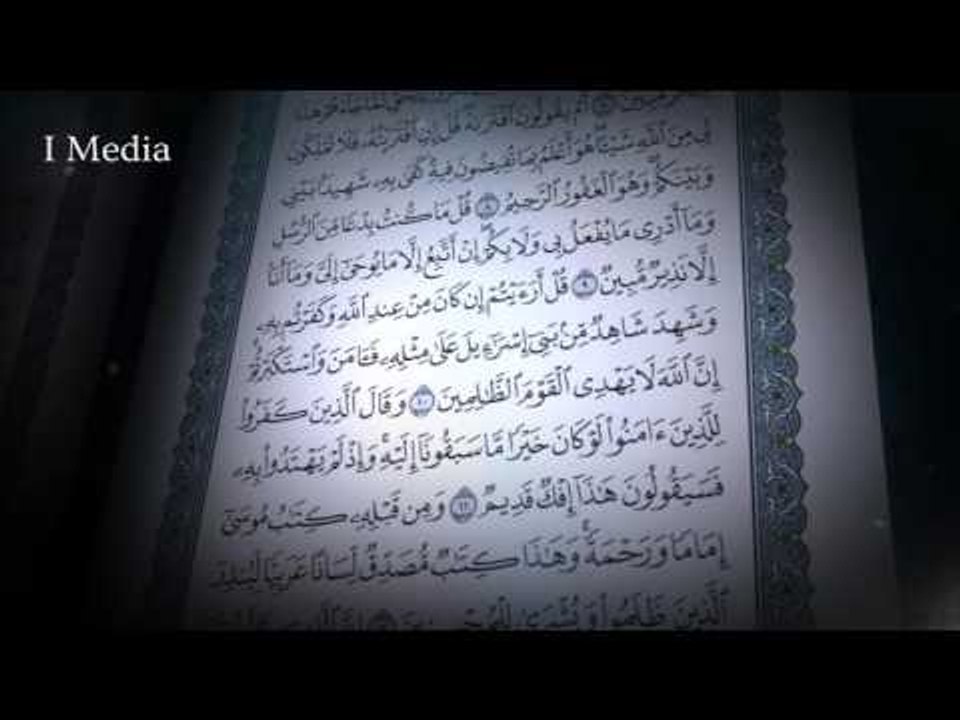 I Media
أَمْ يَقُولُونَ ٱفْتَرَىٰهُ قُلْ إِنِ ٱفْتَرَيْتُهُۥ فَلَا تَمْلِكُونَ
لِى مِنَ ٱللَّهِ شَيْـًٔا هُوَ أَعْلَمُ بِمَا تُفِيضُونَ فِيهِ كَفَىٰ بِهِۦ شَهِيدًۢا بَيْنِى
وَبَيْنَكُمْ وَهُوَ ٱلْغَفُورُ ٱلرَّحِيمُ ٨ قُلْ مَا كُنتُ بِدْعًا مِّنَ ٱلرُّسُلِ
وَمَآ أَدْرِى مَا يُفْعَلُ بِى وَلَا بِكُمْ إِنْ أَتَّبِعُ إِلَّا مَا يُوحَىٰٓ إِلَىَّ وَمَآ أَنَا۠
إِلَّا نَذِيرٌ مُّبِينٌ ٩ قُلْ أَرَءَيْتُمْ إِن كَانَ مِنْ عِندِ ٱللَّهِ وَكَفَرْتُم بِهِۦ
وَشَهِدَ شَاهِدٌ مِّنۢ بَنِىٓ إِسْرَٰٓءِيلَ عَلَىٰ مِثْلِهِۦ فَـَٔامَنَ وَٱسْتَكْبَرْتُمْ
إِنَّ ٱللَّهَ لَا يَهْدِى ٱلْقَوْمَ ٱلظَّٰلِمِينَ ١٠ وَقَالَ ٱلَّذِينَ كَفَرُوا۟
لِلَّذِينَ ءَامَنُوا۟ لَوْ كَانَ خَيْرًا مَّا سَبَقُونَآ إِلَيْهِ وَإِذْ لَمْ يَهْتَدُوا۟ بِهِۦ
فَسَيَقُولُونَ هَٰذَآ إِفْكٌ قَدِيمٌ ١١ وَمِن قَبْلِهِۦ كِتَٰبُ مُوسَىٰٓ
إِمَامًا وَرَحْمَةً وَهَٰذَا كِتَٰبٌ مُّصَدِّقٌ لِّسَانًا عَرَبِيًّا لِّيُنذِرَ
ٱلَّذِينَ ظَلَمُوا۟ وَبُشْرَىٰ